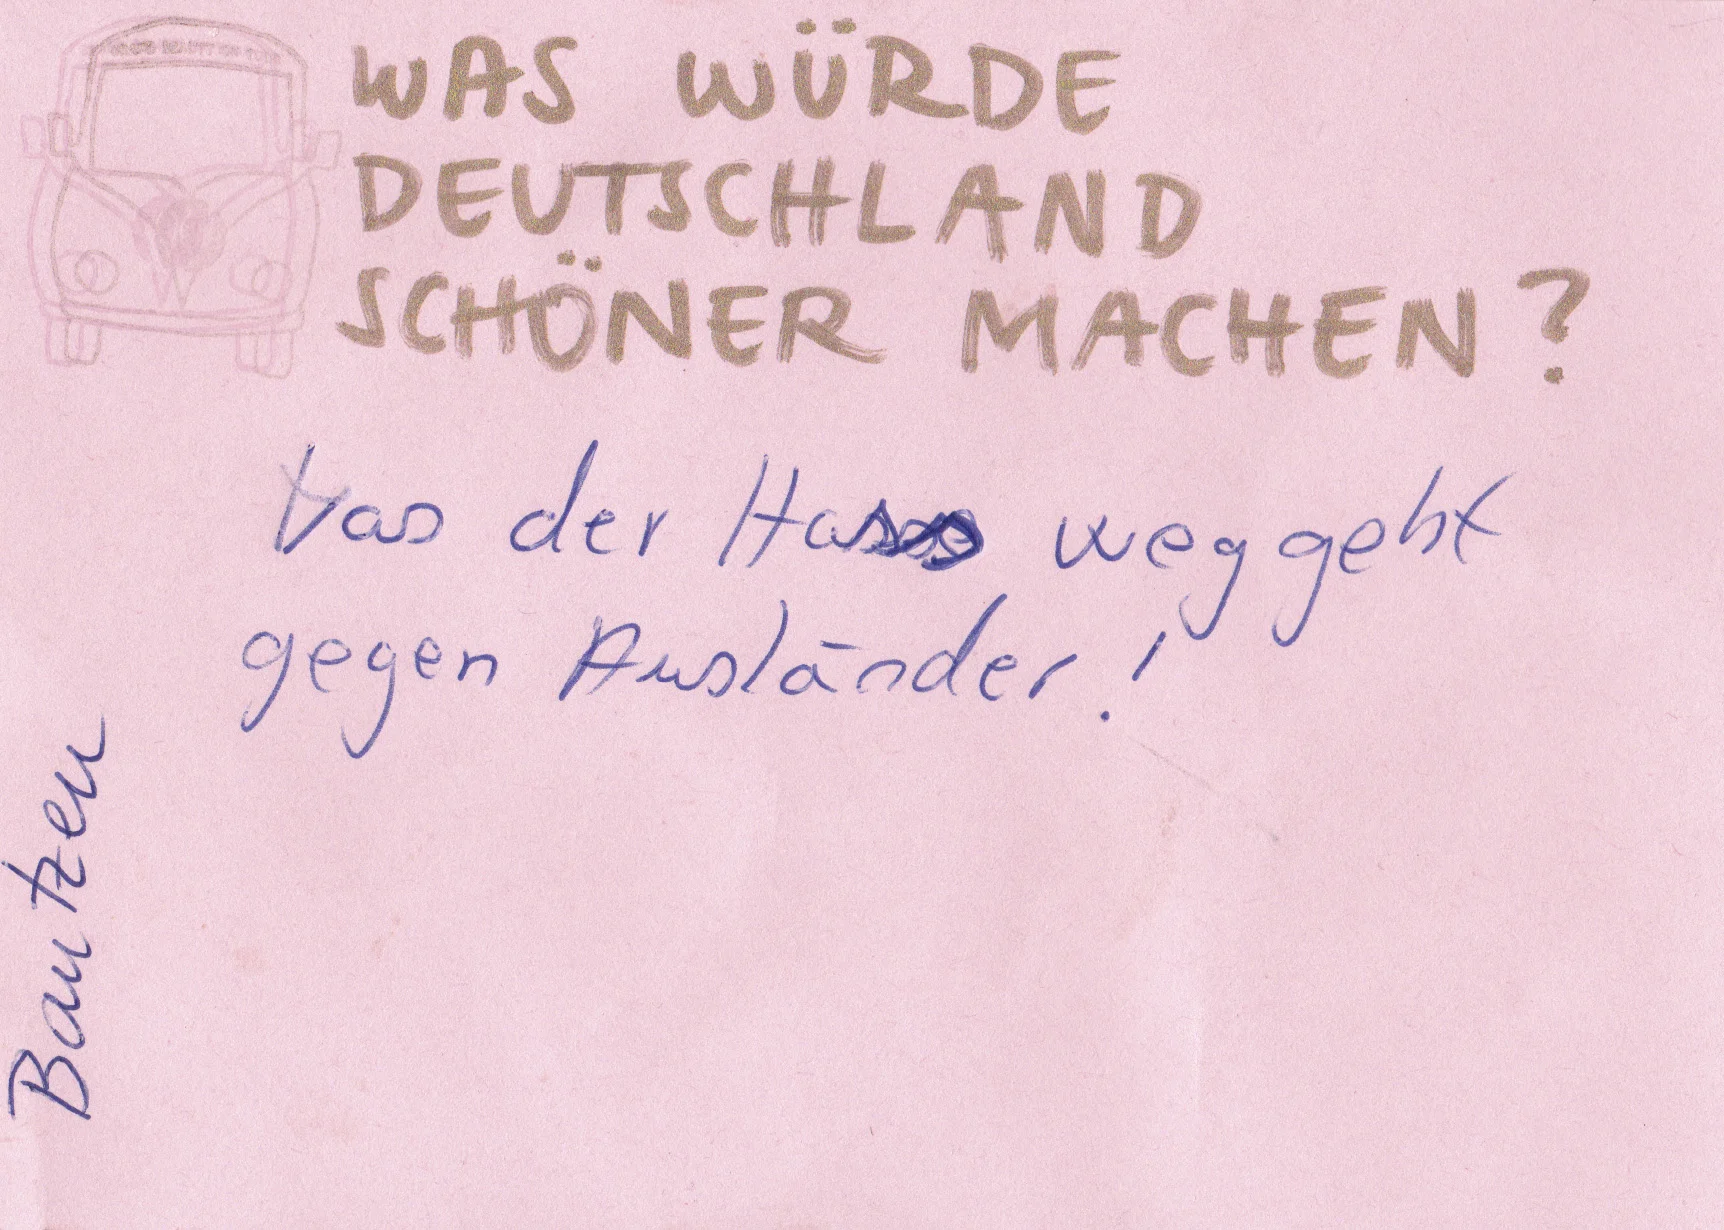 WAS WÜRDE
DEUTSCHLAND
SCHÖNER MACHEN?
Das der Hass weg geht
gegen Ausländer!
Bautzen